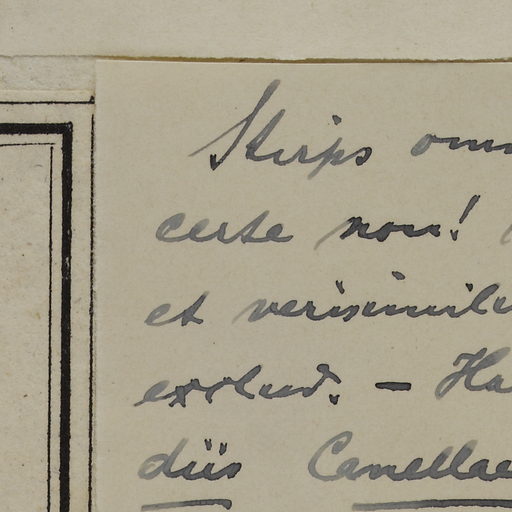 Stirps omn
certe non!
et verisimil
exclud. – Ha
diis Canellae